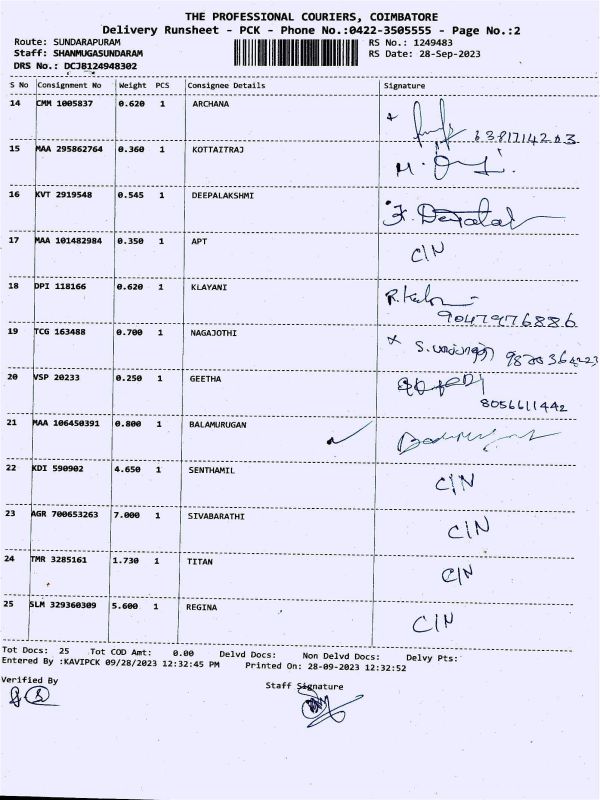 THE PROFESSIONAL COURIERS, COIMBATORE
Delivery Runsheet - PCK - Phone No.:0422-3505555 - Page No.:2
Route: SUNDARAPURAM RS No.: 1249483
Staff: SHANMUGASUNDARAM RS Date: 28-Sep-2023
DRS No.: DCJ8124948302
S No Consignment No Weight PCS Consignee Details Signature
14 CMM 1005837 0.620 1 ARCHANA
6381714203
15 MAA 295862764 0.360 1 KOTTAITRAJ
M.
16 KVT 2919548 0.545 1 DEEPALAKSHMI
17 MAA 101482984 0.350 1 APT C/N
18 DPI 118166 0.620 1 KLAYANI
9047976886
19 TCG 163488 0.700 1 NAGAJOTHI
S.
20 VSP 20233 0.250 1 GEETHA
8056611442
21 MAA 106450391 0.800 1 BALAMURUGAN
22 KDI 590902 4.650 1 SENTHAMIL C/N
23 AGR 700653263 7.000 1 SIVABARATHI C/N
24 TMR 3285161 1.730 1 TITAN C/N
25 SLM 329360309 5.600 1 REGINA C/N
Tot Docs: 25 Tot COD Amt: 0.00 Delvd Docs: Non Delvd Docs: Delvy Pts:
Entered By :KAVIPCK 09/28/2023 12:32:45 PM Printed On: 28-09-2023 12:32:52
Verified By
Staff Signature